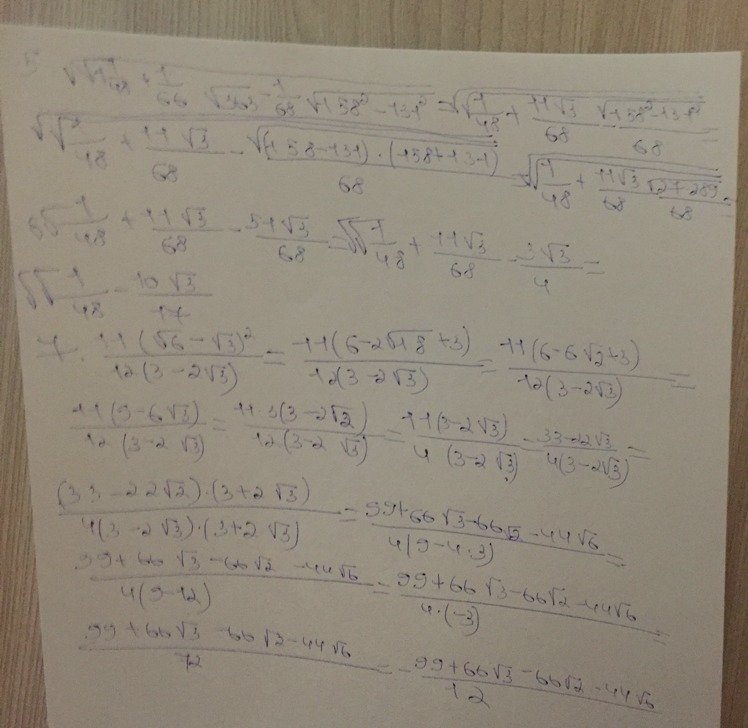 5 √√1 1/48 + 1/66 √363 - 1/68 √158² - 131² = √√1/48 + 11√3/68 - √158² - 131²/68 =
√√1/48 + 11√3/68 - √(158-131)·(158+131)/68 = √√1/48 + 11√3/68 √27·289/68 =
√1/48 + 11√3/68 - 51√3/68 = √√1/48 + 11√3/68 - 3√3/4 =
√√1/48 - 10√3/17
7. 11(√6-√3)²/12(3-2√3) = 11(6-2√18+3)/12(3-2√3) = 11(6-6√2+3)/12(3-2√3) =
11(9-6√3)/12(3-2√3) = 11 3(3-2√2)/12(3-2√3) = 11(3-2√3)/4(3-2√3) - 33-22√3/4(3-2√3) =
(33-22√2)·(3+2√3)/4(3-2√3)·(3+2√3) = 99+66√3-66√2-44√6/4(9-4·3) =
99+66√3-66√2-44√6/4(9-12) = 99+66√3-66√2-44√6/4·(-3) =
99+66√3-66√2-44√6/12 = -99+66√3-66√2-44√6/12